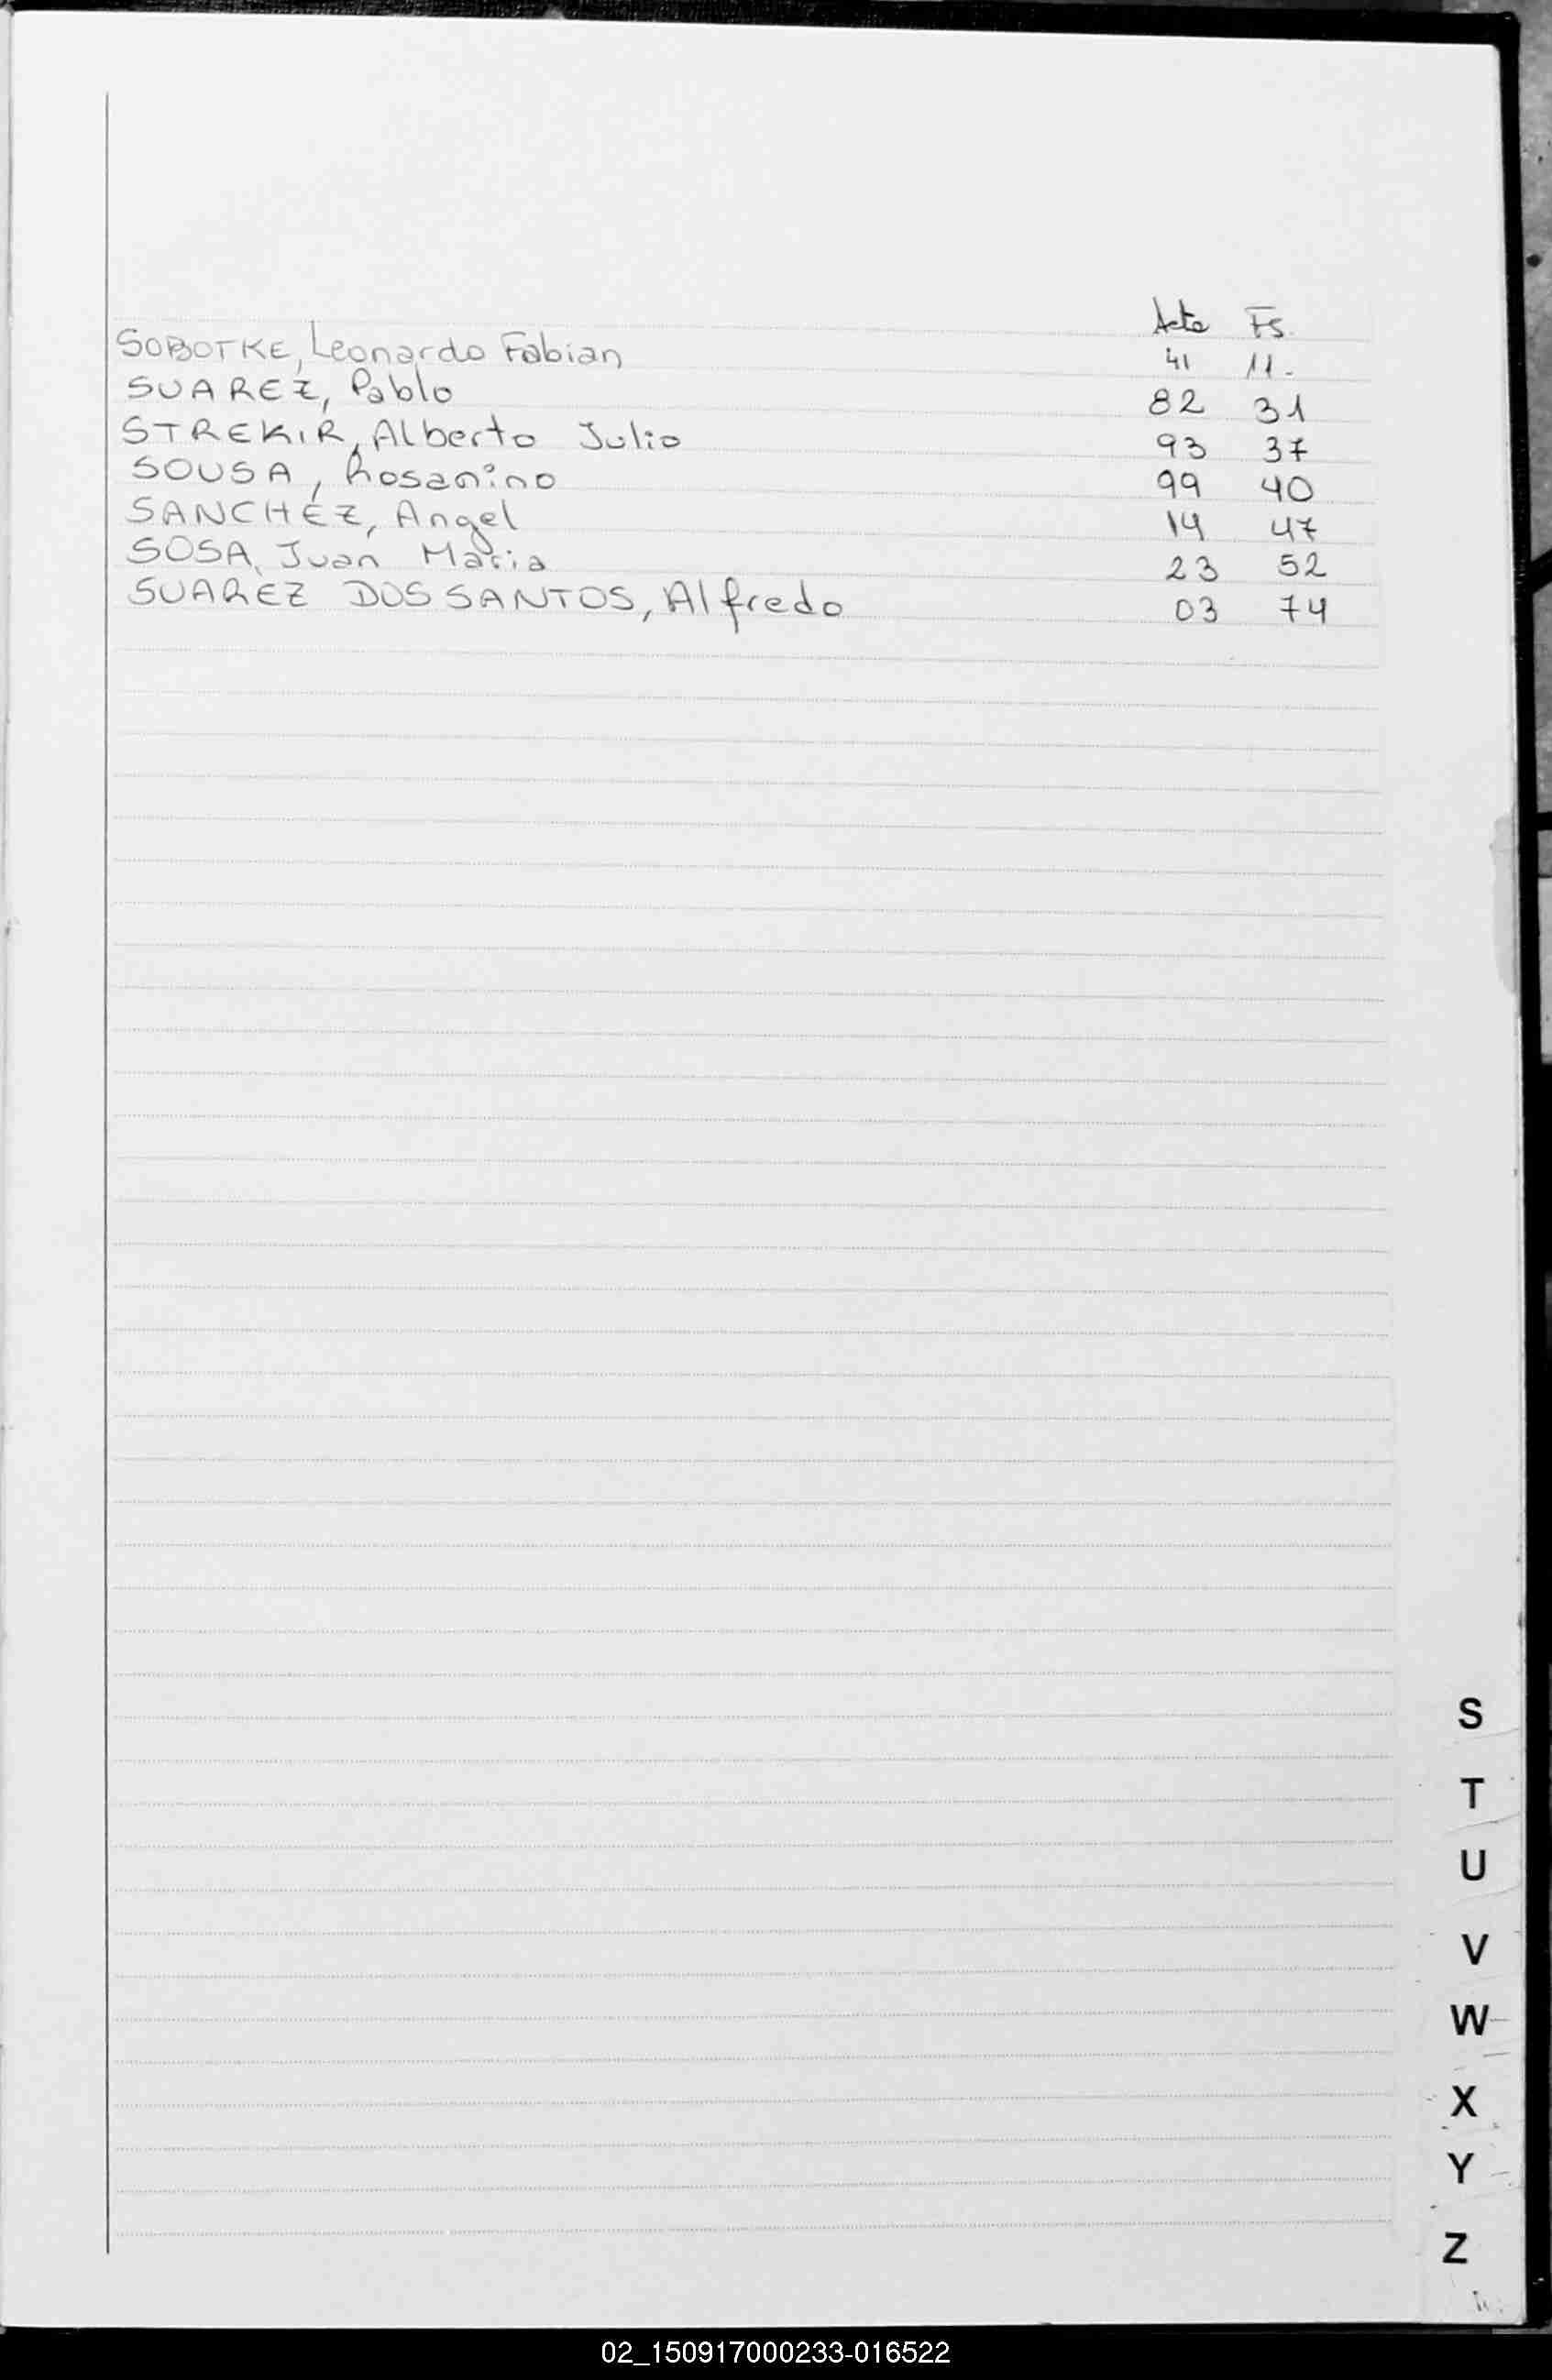 Acta Fs.
SOBOTKE, Leonardo Fabian 41 11.
SUAREZ, Pablo 82 31
STREKIR, Alberto Julio 93 37
SOUSA, Rosanino 99 40
SANCHEZ, Angel 14 47
SOSA, Juan Maria 23 52
SUAREZ DOS SANTOS, Alfredo 03 74
S
T
U
V
W
X
Y
Z
02_150917000233-016522